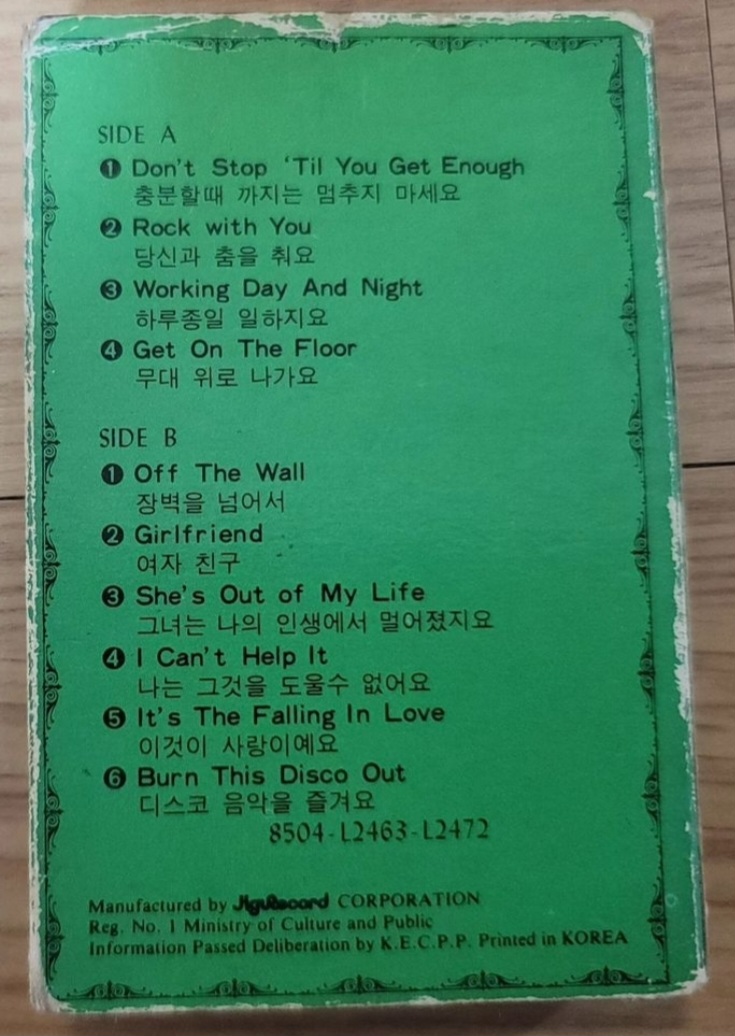 SIDE A
❶ Don't Stop 'Til You Get Enough
충분할때 까지는 멈추지 마세요
❷ Rock with You
당신과 춤을 춰요
❸ Working Day And Night
하루종일 일하지요
❹ Get On The Floor
무대 위로 나가요
SIDE B
❶ Off The Wall
장벽을 넘어서
❷ Girlfriend
여자 친구
❸ She's Out of My Life
그녀는 나의 인생에서 멀어졌지요
❹ I Can't Help It
나는 그것을 도울수 없어요
❺ It's The Falling In Love
이것이 사랑이예요
❻ Burn This Disco Out
디스코 음악을 즐겨요
8504-L2463-L2472
Manufactured by JiguRecord CORPORATION
Reg. No. 1 Ministry of Culture and Public
Information Passed Deliberation by K.E.C.P.P. Printed in KOREA